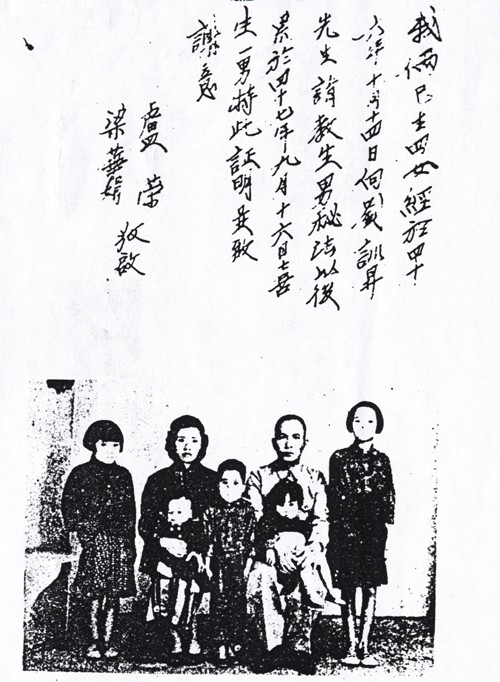 我倆已生四女經於四十
六年十月十四日向戴訓昇
先生請教生男秘法以後
果於四十七年九月十六日喜
生一男特此証明並致
謝意
盧榮
梁華 敬啟